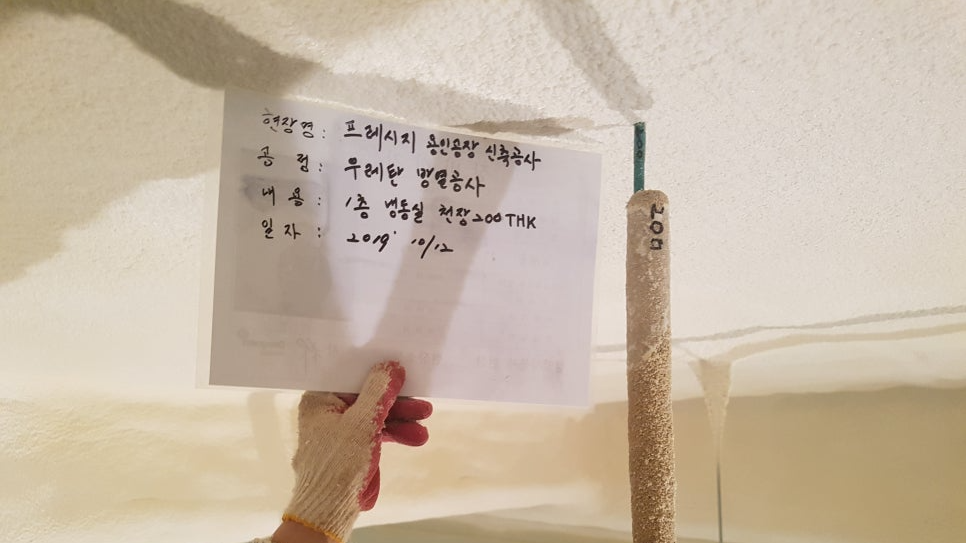 현장명 : 프레시지 용인공장 신축공사
공 정 : 우레탄 방열공사
내 용 : 1층 냉동실 천장 200 THK
일 자 : 2019' 10/12
200